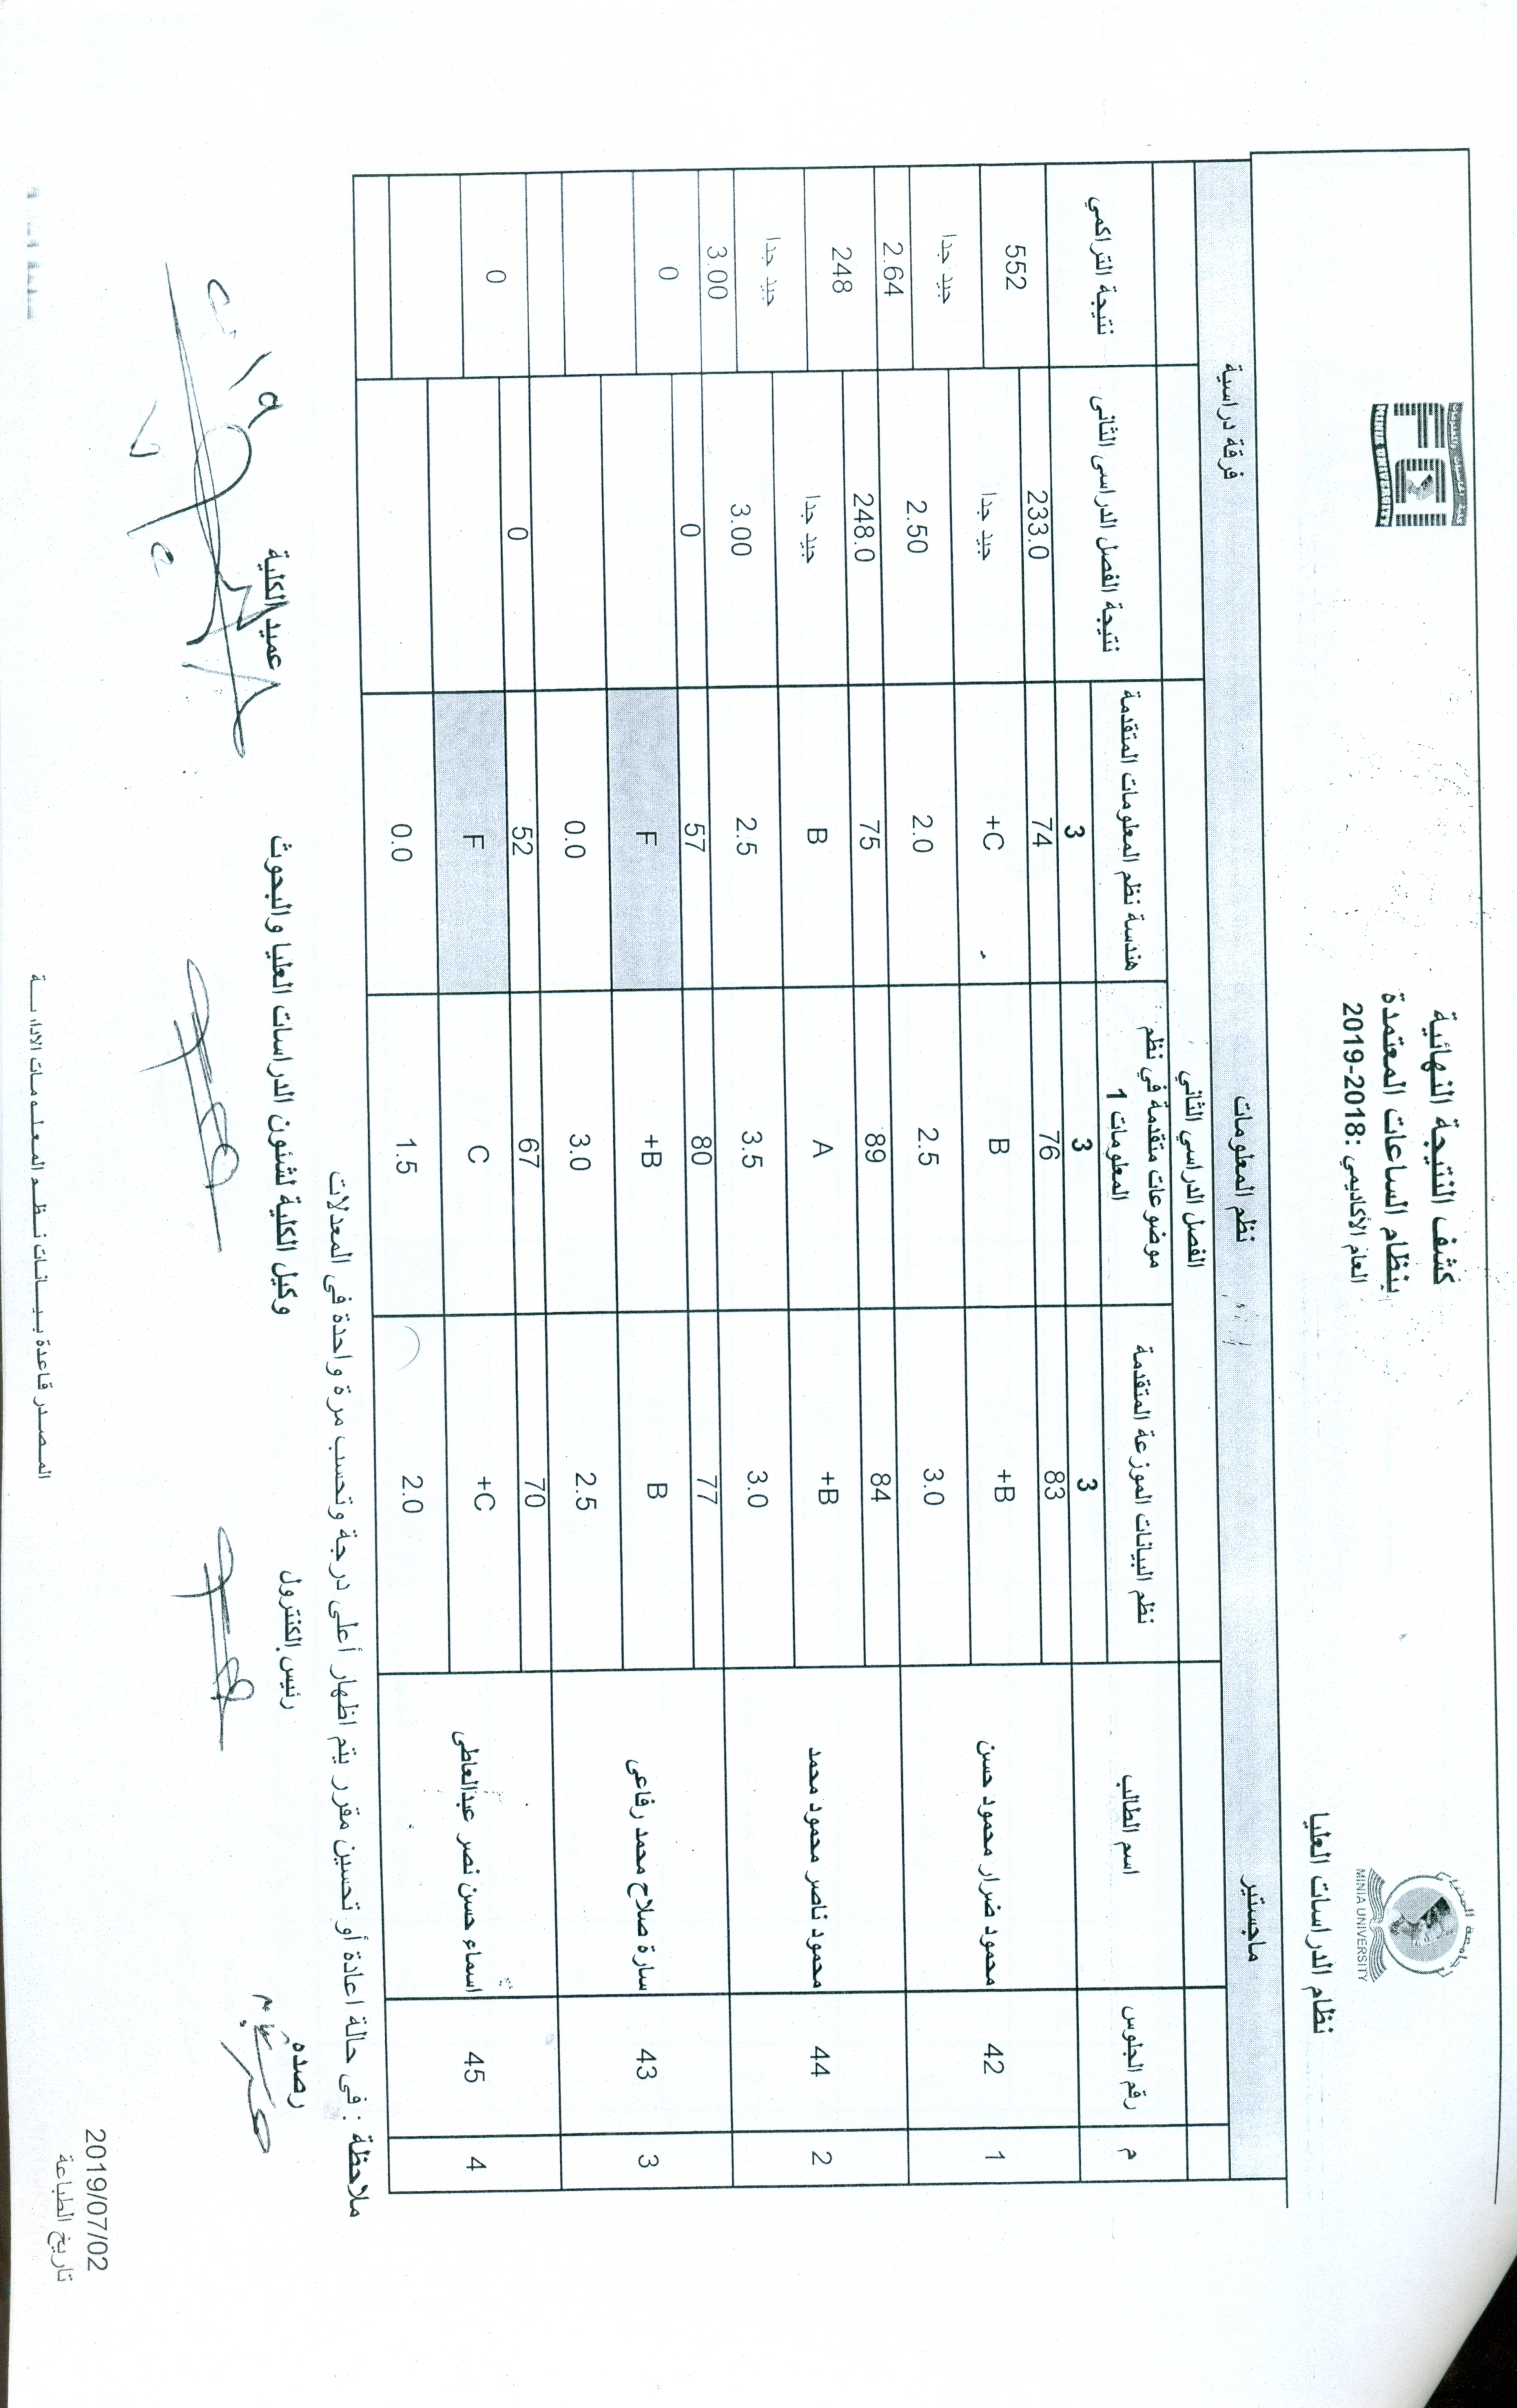 كشف النتيجة النهائية
بنظام الساعات المعتمدة
العام الأكاديمي: 2018-2019
MINIA UNIVERSITY
MINIA UNIVERSITY
نظام الدراسات العليا
ماجستير نظم المعلومات فرقة دراسية
الفصل الدراسي الثاني
م رقم الجلوس اسم الطالب نظم البيانات الموزعة المتقدمة موضوعات متقدمة في نظم المعلومات 1 هندسة نظم المعلومات المتقدمة نتيجة الفصل الدراسى الثانى نتيجة التراكمي
3 3 3
1 42 محمود ضرار محمود حسن 83 76 74 233.0 552
B+ B C+ جيد جدا جيد جدا
3.0 2.5 2.0 2.50 2.64
2 44 محمود ناصر محمود محمد 84 89 75 248.0 248
B+ A B جيد جدا جيد جدا
3.0 3.5 2.5 3.00 3.00
3 43 سارة صلاح محمد رفاعى 77 80 57 0 0
B B+ F
2.5 3.0 0.0
4 45 اسماء حسن نصر عبدالعاطى 70 67 52 0 0
C+ C F
2.0 1.5 0.0
ملاحظة : فى حالة اعادة أو تحسين مقرر يتم اظهار أعلى درجة وتحسب مرة واحدة فى المعدلات
رصده رئيس الكنترول وكيل الكلية لشئون الدراسات العليا والبحوث عميد الكلية
2019/07/02
تاريخ الطباعة
المصدر قاعدة بيانات نظم المعلومات الادارية